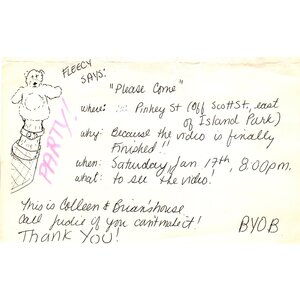 FLEECY
SAYS:
"Please Come"
PARTY!
where: Pinkey St (Off Scott St, east
of Island Park)
why: Because the video is finally
Finished!!
when: Saturday Jan 17th, 8:00pm.
what: to see "the video!
This is Colleen & Brian's house
Call Judie if you can't make it!
Thank You!
BYOB